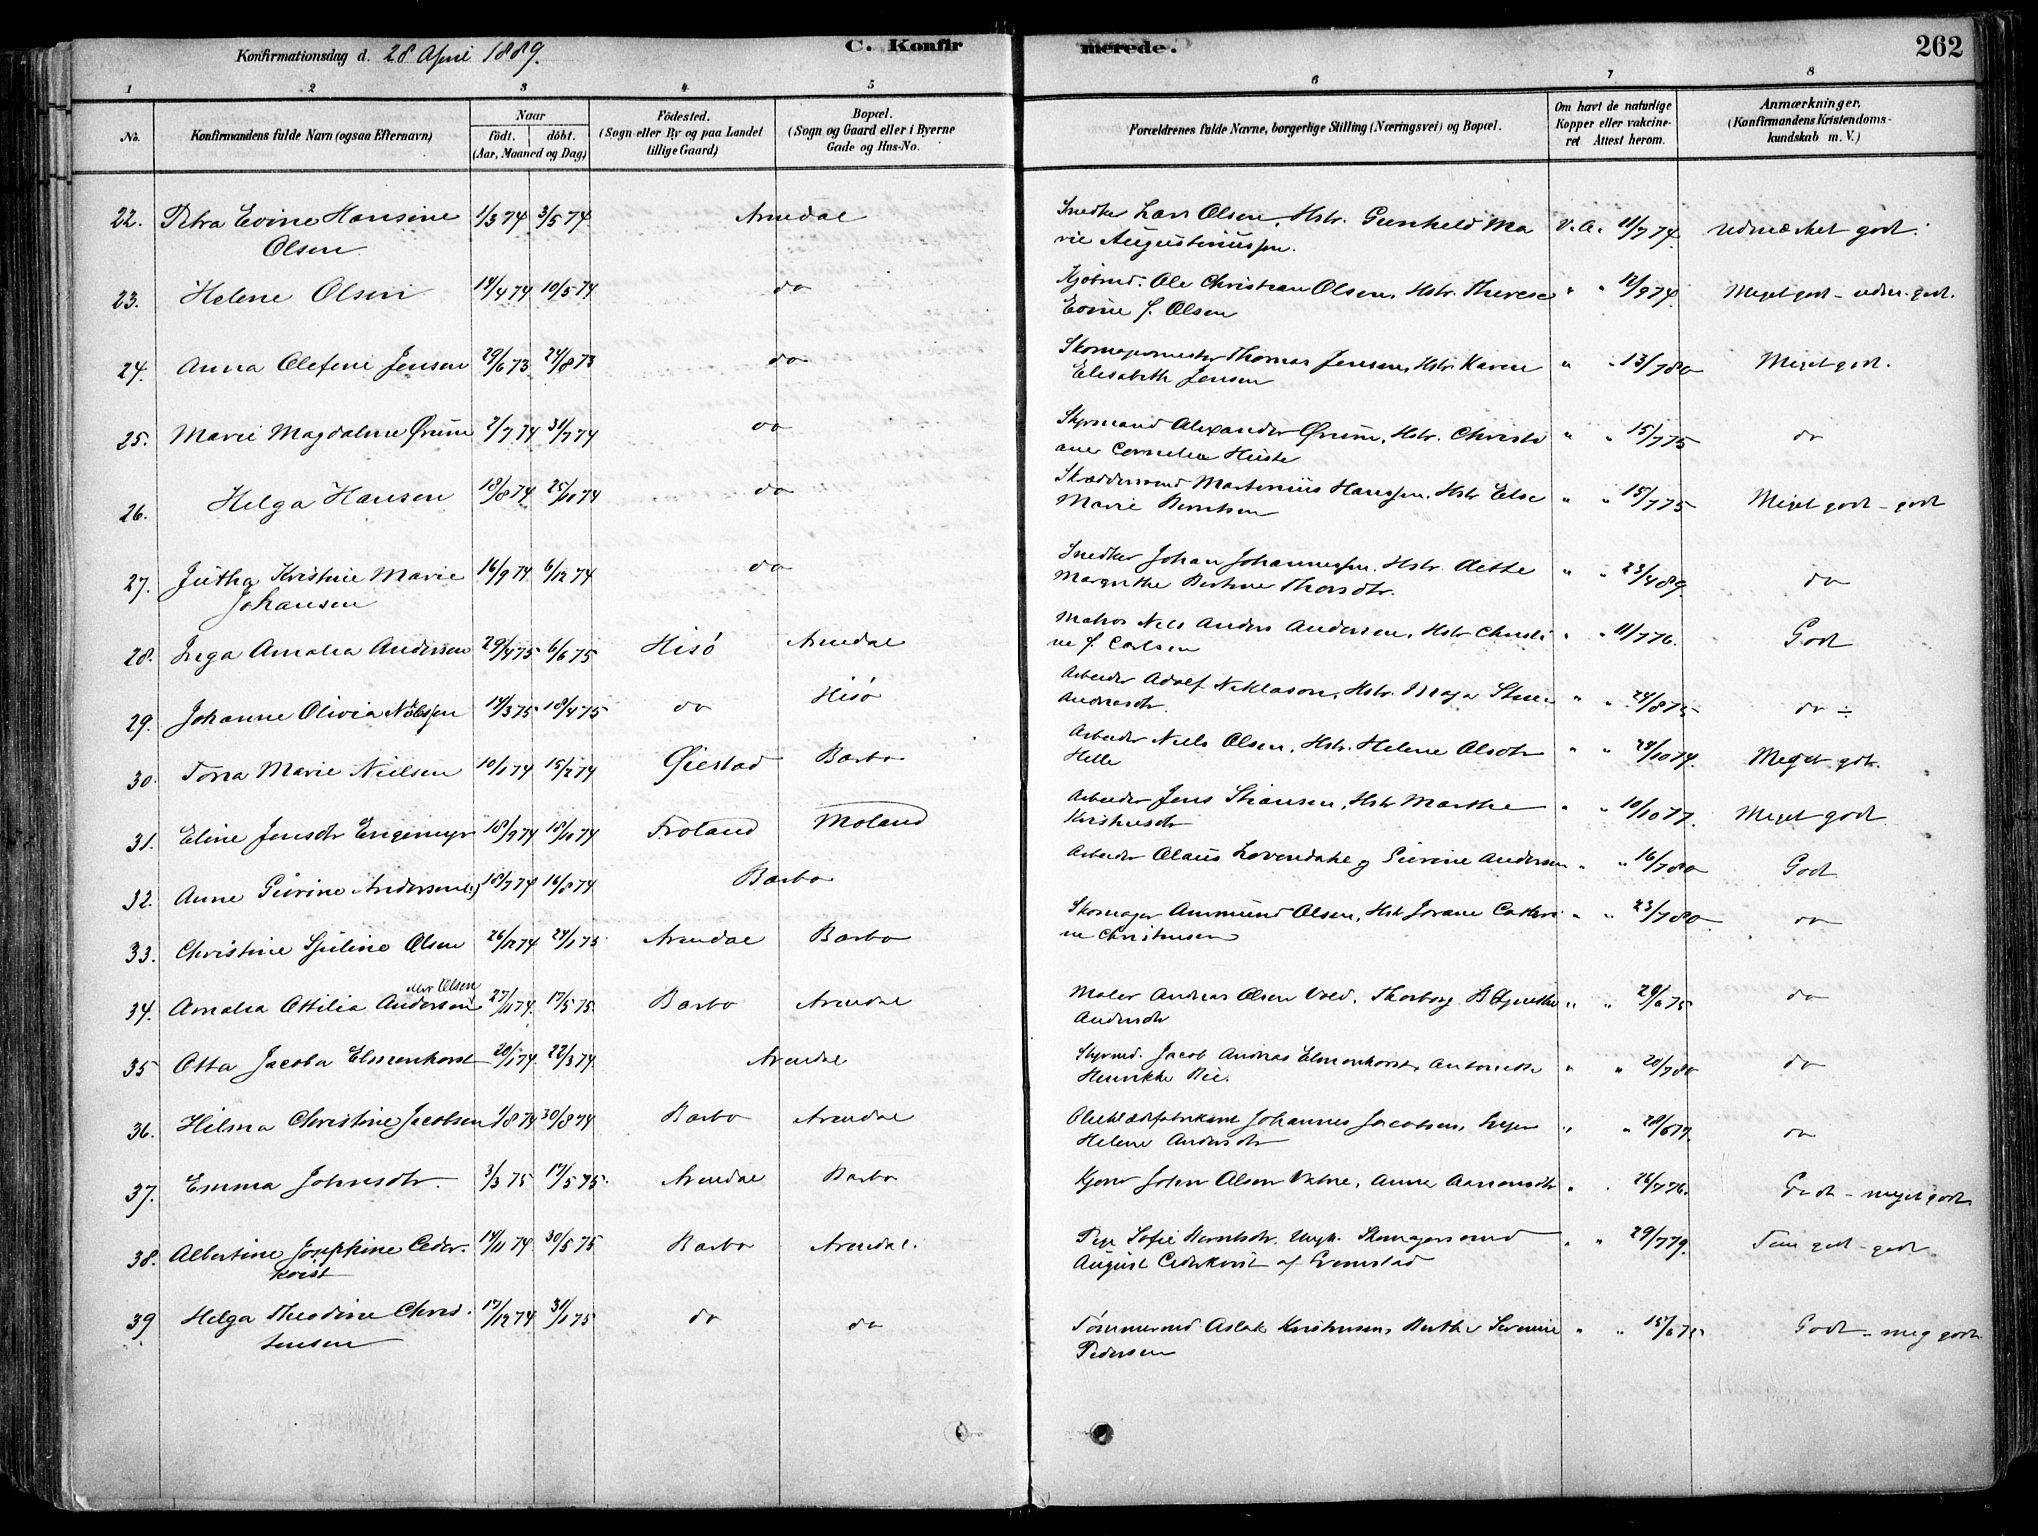 Konfirmationsdag d. 28 April 1889.
C. Konfirmerede.
262
1 2 3 4 5 6 7 8
No. Konfirmandens fulde Navn (ogsaa Efternavn) Naar født. døbt. (Aar, Maaned og Dag) Fødested. (Sogn eller By og paa Landet tillige Gaard) Bopæl. (Sogn og Gaard eller i Byerne Gade og Hus-No. Forældrenes fulde Navne, borgerlige Stilling (Næringsvei) og Bopæl. Om havt de naturlige Kopper eller vakcineret Attest herom. Anmærkninger. (Konfirmandens Kristendomskundskab m. V.)
22. Petra Evine Hansine 1/3 74 3/5 74. Arendal Snedker Lars Olsen, Hstr. Gunhild Ma V. A. 11/7 74. Udmærket godt.
Olsen rie Augustinussen.
23. Helene Olsen 14/4 74 10/5 74 do Kjøbmd. Ole Christian Olsen, Hstr. Therese " " 12/9 74. Meget godt - udm. godt.
Evine f. Olsen
24. Anna Olefine Jensen 29/6 73 24/8 73 do Skomagermester Thomas Jensen, Hstr. Karen " " 13/7 80 Meget godt.
Elisabeth Jensen
25. Marie Magdalene Ørum 2/7 74 31/7 74 do Styrmand Alexander Ørum, Hstr. Christi " " 15/7 75 do
ane Cornelia
26. Helga Hansen 18/8 74 25/10 74 do Skræddersvend Martinius Hanssen, Hstr Else " " 15/7 75 Meget godt - godt
Marie Berntsen
27. Jutha Kristine Marie 16/9 74 6/12 74 do Snedker Johan Johannessen. Hstr. Aette " " 23/4 89. do
Johansen Margrethe Bertine Thorsdtr.
28. Inga Amalia Andersen 29/4 75 6/6 75 Hisø Arendal Matros Nils Anders Andersen, Hstr Christi " " 11/7 76. Godt
ne f. Carlsen
29. Johanne Olivia 14/3 75 18/4 75 do Hisø Arbeider Adolf Niklason, Hstr. Maja Stina " " 24/8 75 do ÷
Andreasdtr.
30. Tona Marie Nielsen 10/1 74 15/2 74 Øiestad Barbo Arbeider Niels Olsen, Hstr. Helene Olsdtr " " 28/10 74. Meget godt.
Helle
31. Eline Jensdtr Engemyr 18/9 74 18/10 74 Froland Moland Arbeider Jens Stiansen, Hstr Marthe " " 10/10 77. Meget godt.
Kristensdtr
32. Anne Gurine Andersen 18/7 74 16/8 74 Barbo Arbeider Olaus Lovendahl og Gurine Andersen " " 16/7 80 Godt
33. Christine Juline Olsen 26/12 74 24/1 75. Arendal Barbo Skomager Ammund Olsen, Hstr Jorane Cathri " " 23/7 80. do
ne Christensen
eller Olsen
34. Amalia Ottilia Andersen 27/11 74. 17/5 75. Barbo Arendal Maler Andreas Olsen Vold, Thorborg B Agnethe " " 29/6 75 do
Andersdtr
35 Otta Jacoba Elmenhorst 20/1 74. 22/3 74. Arendal Styrmd. Jacob Andreas Elmenhorst, Antonette " " 20/7 80 do
Henrikke Bie.
36. Hilma Christine Jacobsen 1/8 74 30/8 74 Barbo Arendal Johannes Jacobsen, " " 28/6 77. do
Helene Andersdtr
37. Emma Johnsdtr. 3/3 75 17/5 75. Arendal Barbo John Olsen Vatne, Anne Aanonsdtr " " 26/7 76. Godt - meget godt
38. Albertine Josephine Ceder- 14/11 74 30/5 75 Barbo Arendal. Pige Sofie Berntsdtr. Ungk. Skomagersvend " " 29/7 79. Temt godt - godt
kvist August Cederkvist af Grimstad
39 Helga Theodine Chris- 17/12 74 31/1 75 do do Tømmermd Aslak Kristensen, Berthe Severine " " 15/6 75 Godt - meg godt
tensen Pedersen